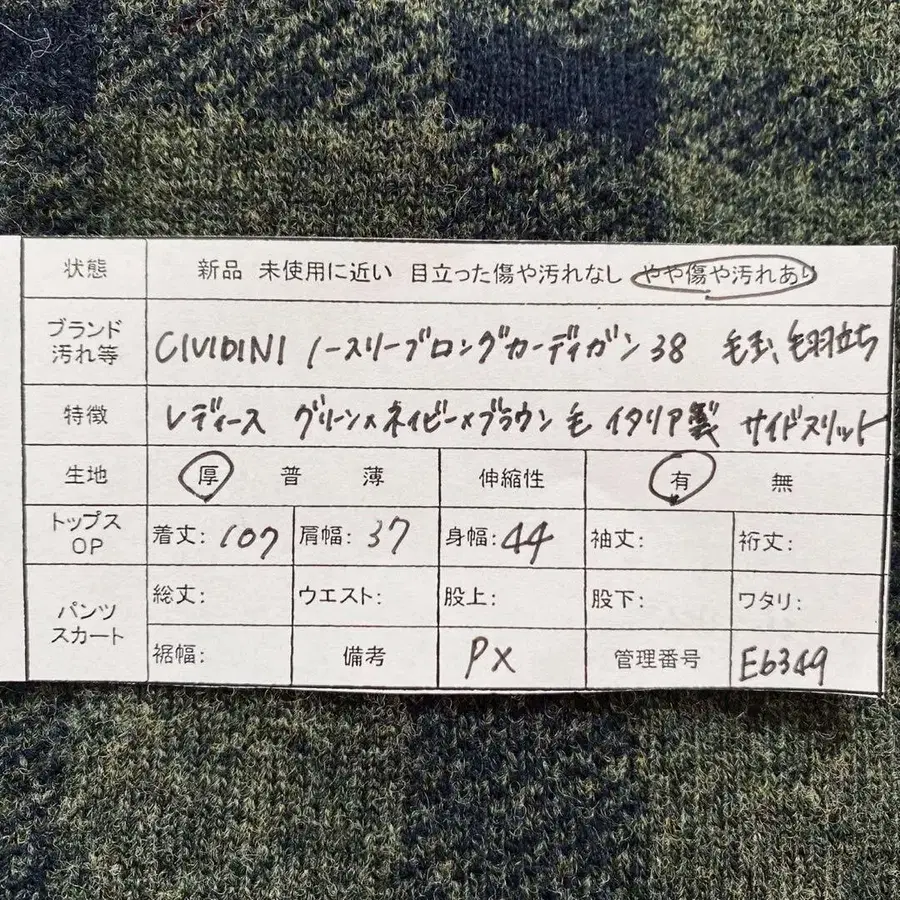 状態 新品 未使用に近い 目立った傷や汚れなし やや傷や汚れあり
ブランド
汚れ等 CIVIDINI ノースリーブロングカーディガン 38 毛玉、毛羽立ち
特徴 レディース グリーン×ネイビー×ブラウン 毛 イタリア製 サイドスリット
生地 厚 普 薄 伸縮性 有 無
トップス
OP 着丈: 107 肩幅: 37 身幅: 44 袖丈: 裄丈:
パンツ
スカート 総丈: ウエスト: 股上: 股下: ワタリ:
裾幅: 備考 PX 管理番号 E6349